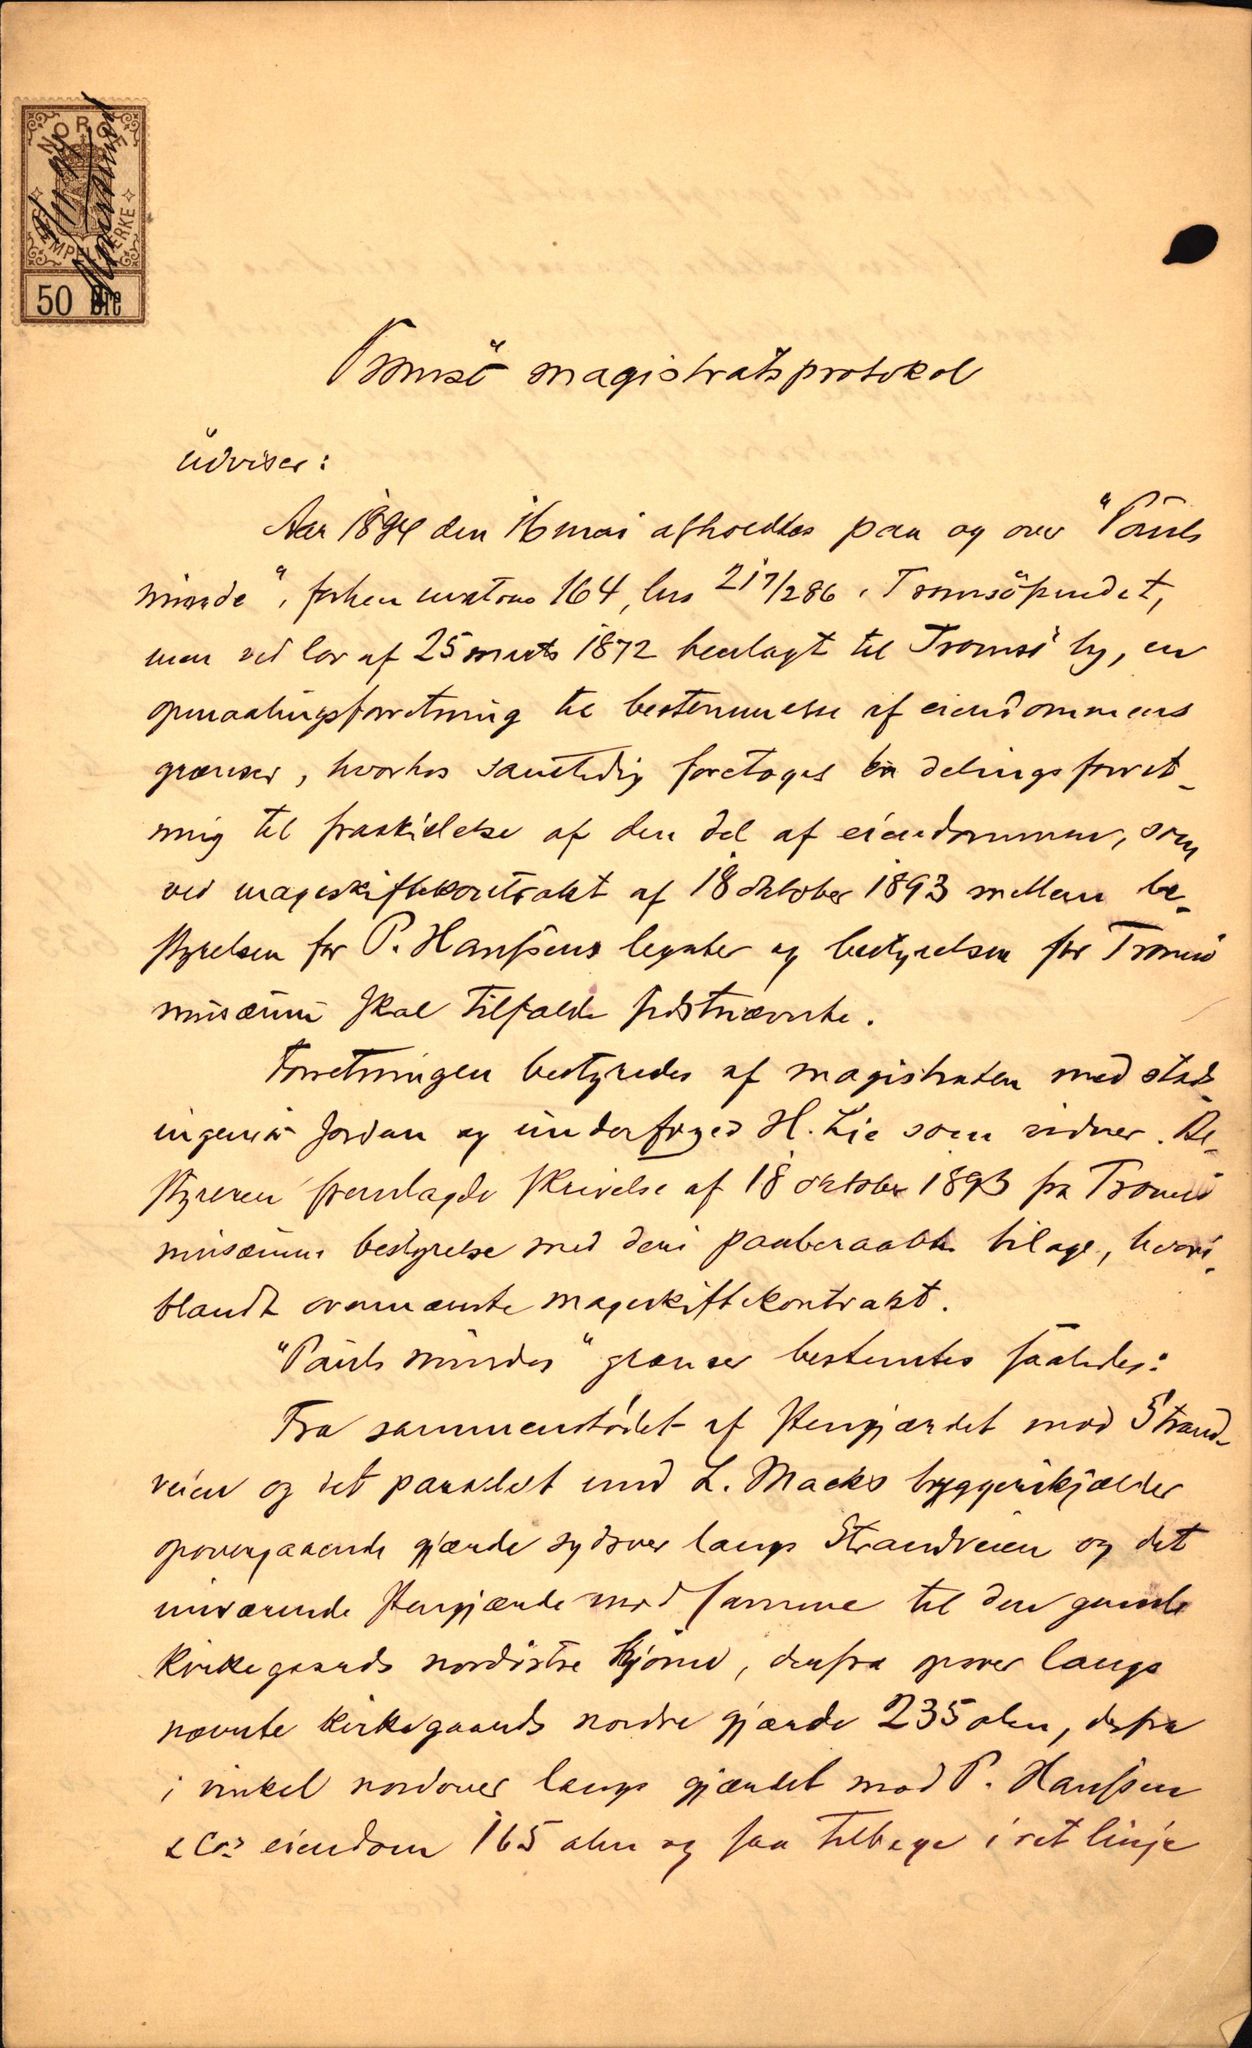 NORGE
STEMPELMERKE
50 Øre
Tromsö magistratsprotokol
udviser:
Aar 1894 den 16 mai afholdtes paa og over "Pauls
minde", forhen matrno 164, lno 217/286 i Tromsösundet,
men ved lov af 25 marts 1872 henlagt til Tromsö by, en
opmaalingsforretning til bestemmelse af eiendommens
grænser, hvorhos samtidig foretoges en delingsforret-
ning til fraskillelse af den del af eiendommen, som
ved mageskiftekontrakt af 18 oktober 1893 mellem be-
styrelsen for P. Hanssens legater og bestyrelsen for Tromsö
musæum skal tilfalde sidstnævnte.
Forretningen bestyredes af magistraten med stads-
ingeniör Jordan og underfoged H. Lie som vidner. Be-
styreren fremlagde skrivelse af 18 oktober 1893 fra Tromsö
musæums bestyrelse med deri paaberaabte bilage, hvori-
blandt ovennævnte mageskiftekontrakt.
"Pauls mindes" grænser bestemtes saaledes:
Fra sammenstödet af stengjærdet mod Strand-
veien og det paralelt med L. Macks bryggerikjælder
opovergaaende gjærde sydover langs Strandveien og det
nuværende stengjærde mod samme til den gamle
kirkegaards nordöstre hjörne, derfra opover langs
nævnte kirkegaards nordre gjærde 235 alen, derfra
i vinkel nordover langs gjærdet mod P. Hanssen
& Co's eiendom 165 alen og saa tilbage i ret linje